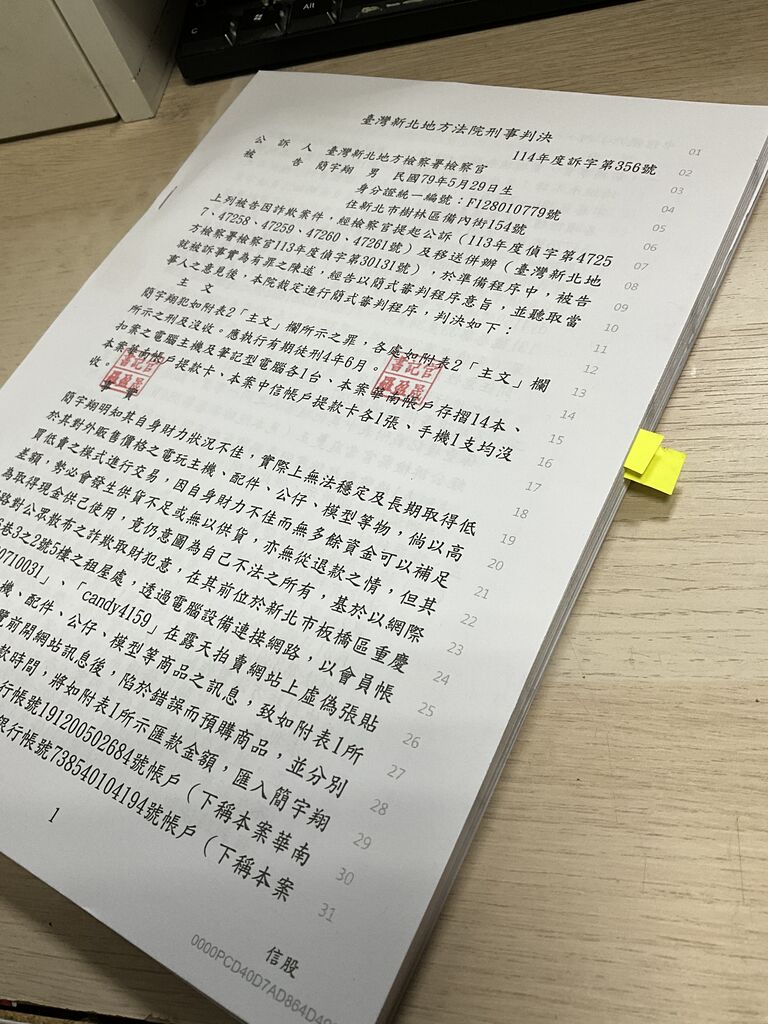 Alt
臺灣新北地方法院刑事判決
01
114年度訴字第356號
02
公訴人 臺灣新北地方檢察署檢察官
03
被告 簡宇翔 男 民國79年5月29日生
04
身分證統一編號：F128010779號
05
住新北市樹林區備內街154號
06
上列被告因詐欺案件，經檢察官提起公訴（113年度偵字第4725
07
7、47258、47259、47260、47261號）及移送併辦（臺灣新北地
08
方檢察署檢察官113年度偵字第30131號），於準備程序中，被告
09
就被訴事實為有罪之陳述，經告以簡式審判程序意旨，並聽取當
10
事人之意見後，本院裁定進行簡式審判程序，判決如下：
11
主文
12
簡宇翔犯如附表2「主文」欄所示之罪，各處如附表2「主文」欄
13
所示之刑及沒收。應執行有期徒刑4年6月。
14
扣案之電腦主機及筆記型電腦各1台、本案華南帳戶存摺14本、
15
本案華南帳戶提款卡、本案中信帳戶提款卡各1張、手機1支均沒
16
收。
書記官
書記官
17
事實
18
簡宇翔明知如其自身財力狀況不佳，實際上無法穩定及長期取得低
19
於其對外販售價格之電玩主機、配件、公仔、模型等物，倘以高
20
買低賣之模式進行交易，因自身財力不佳而無多餘資金可以補足
21
差額，勢必會發生供貨不足或無以供貨，亦無從退款之情，但其
22
為取得現金供己使用，竟仍意圖為自己不法之所有，基於以網際
23
路對公眾散布之詐欺取財犯意，在其前位於新北市板橋區重慶
24
巷3之2號5樓之租屋處，透過電腦設備連接網路，以會員帳
25
0710031」、「candy4159」在露天拍賣網站上虛偽張貼
26
機、配件、公仔、模型等商品之訊息，致如附表1所
27
覽前開網站訊息後，陷於錯誤而預購商品，並分別
28
款時間，將如附表1所示匯款金額，匯入簡宇翔
29
行帳號191200502684號帳戶（下稱本案華南
30
銀行帳號738540104194號帳戶（下稱本案
31
1
信股
0000PCD40D7AD864D49